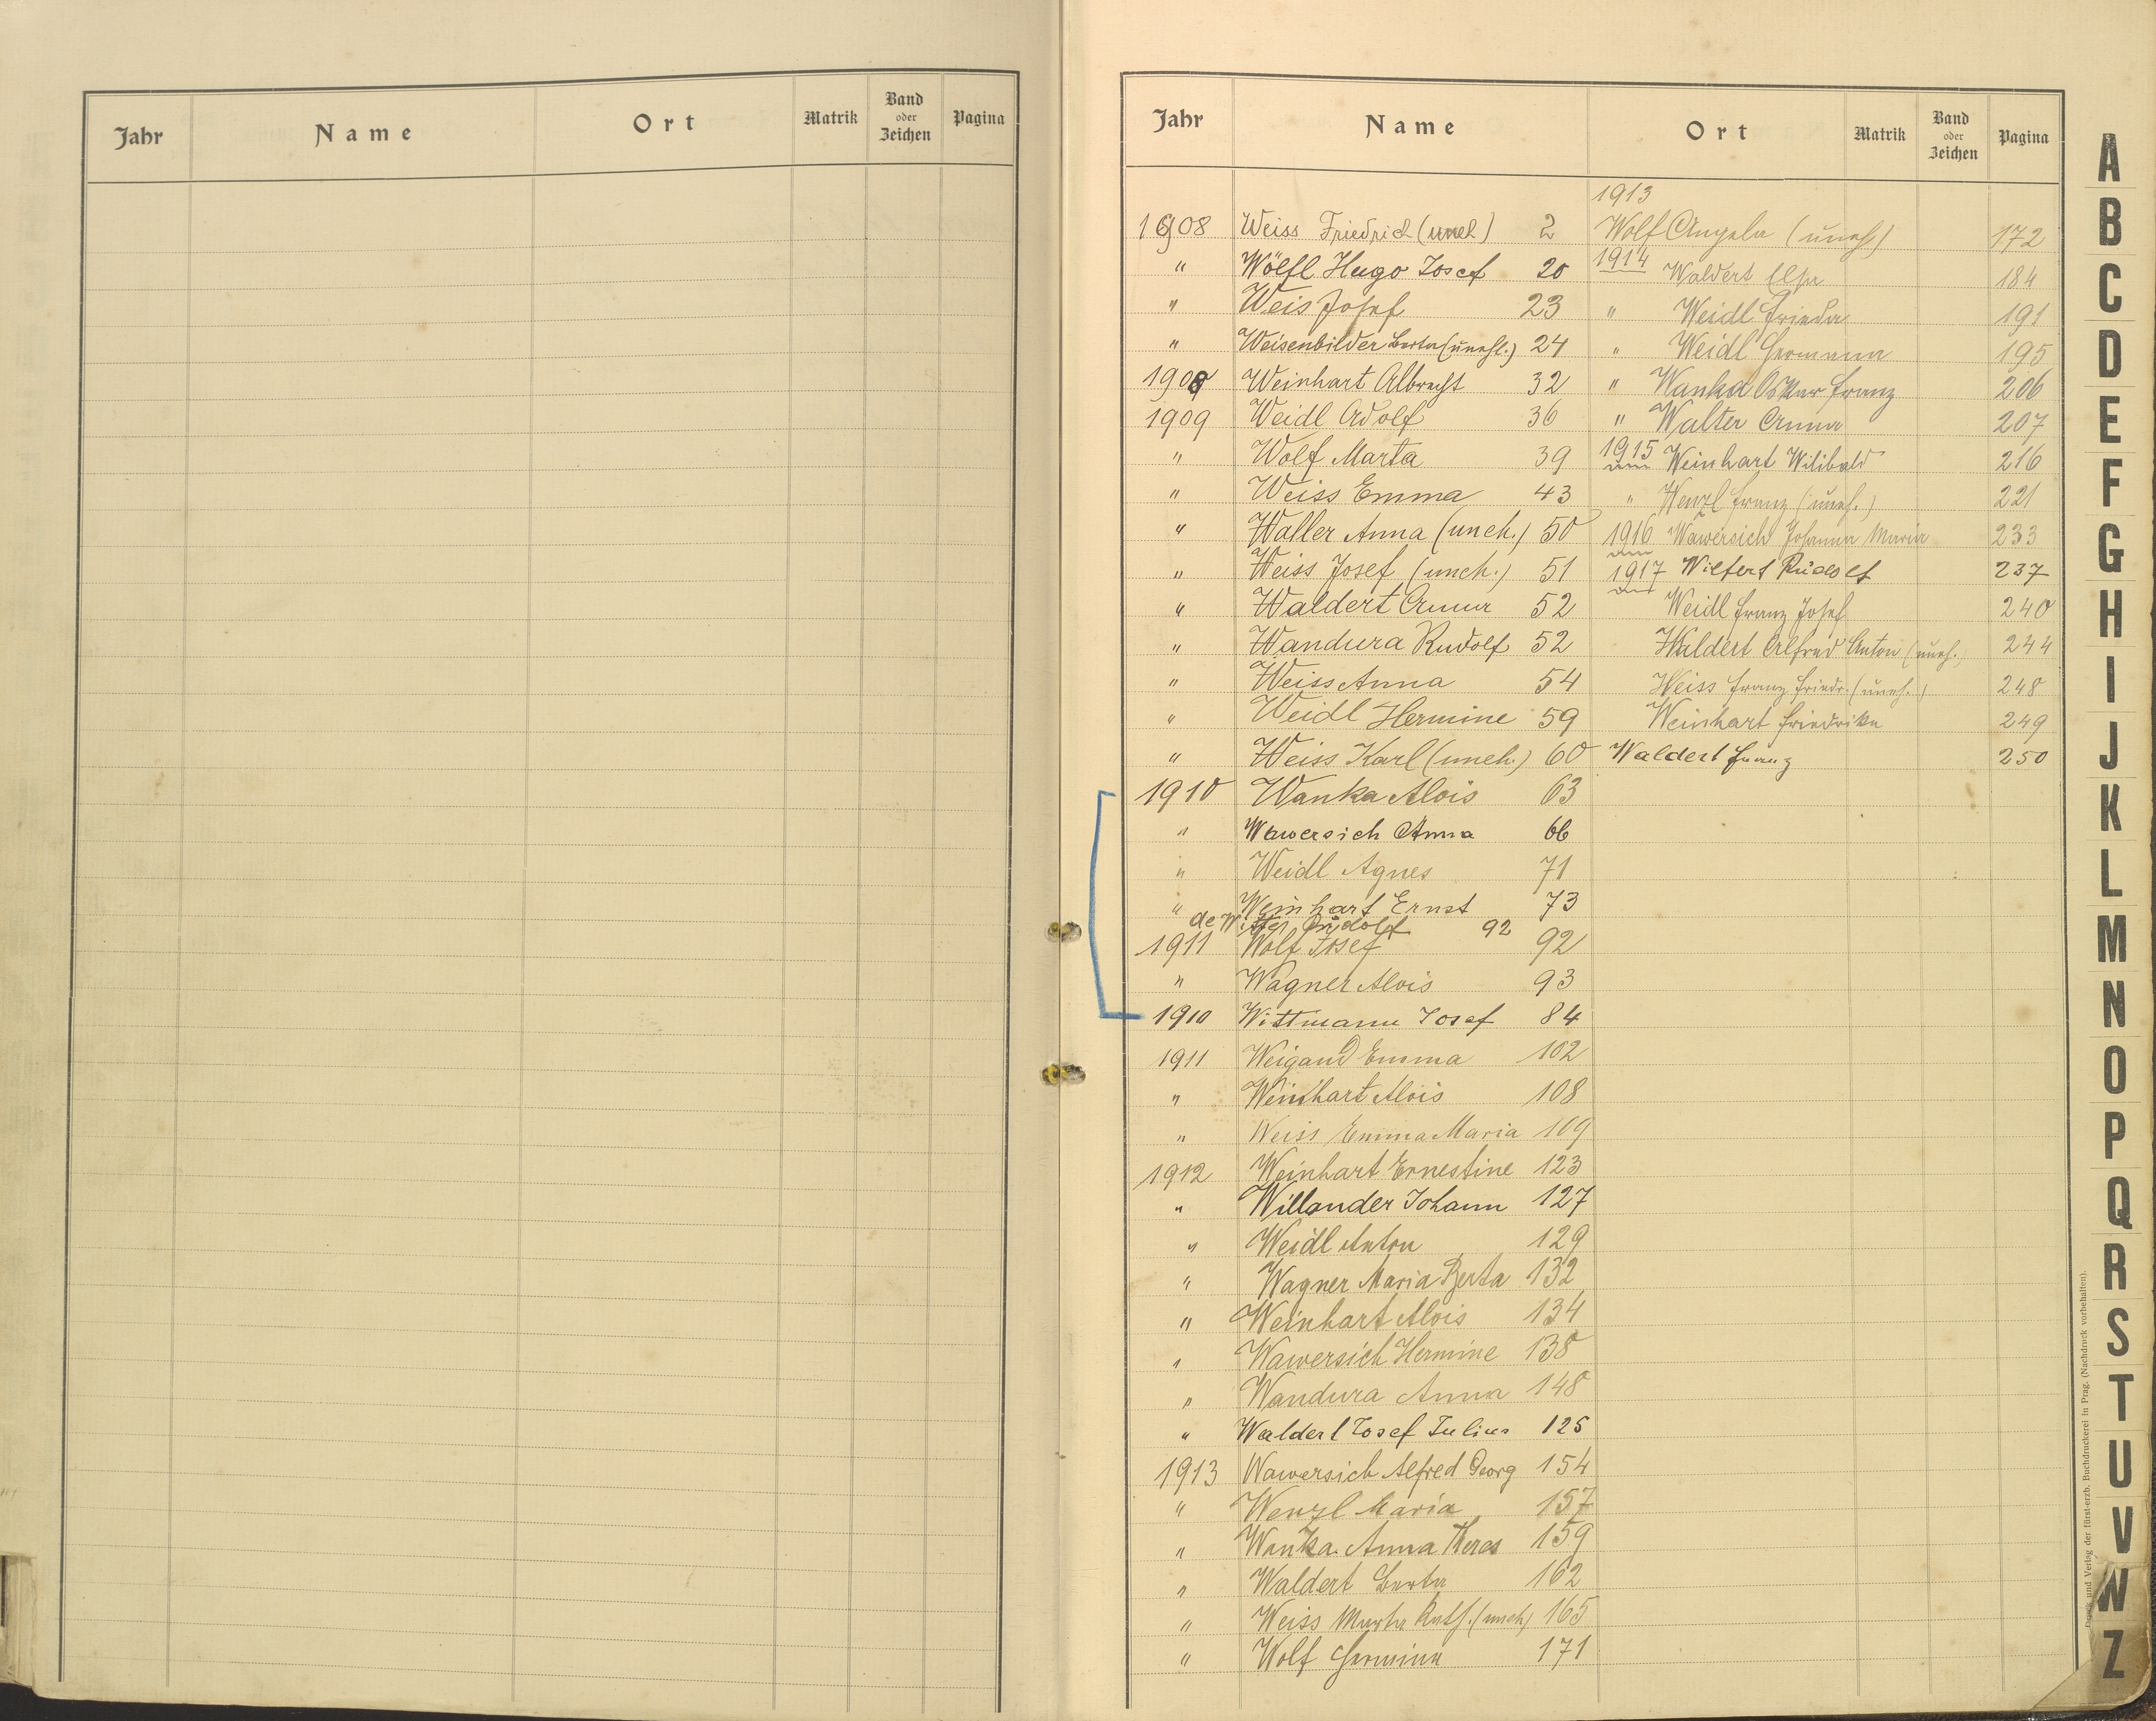 Jahr Name Ort Matrik Band oder Zeichen Pagina
Jahr Name Ort Matrik Band oder Zeichen Pagina
1908 Weiss Friedrich (uneh) 2
" Wölfl Hugo Josef 20
" Weis Josef 23
" Weisenbilder Berta (unehl.) 24
1908 Weinhart Albrecht 32
1909 Weidl Adolf 36
" Wolf Marta 39
" Weiss Emma 43
" Waller Anna (uneh.) 50
" Weiss Josef (uneh.) 51
" Waldert Anna 52
" Wandura Rudolf 52
" Weiss Anna 54
" Weidl Hermine 59
" Weiss Karl (uneh.) 60
1910 Wanka Alois 63
" Wawersich Anna 66
" Weidl Agnes 71
" Weinhart Ernst 73
de Witte Rudolf 92
1911 Wolf Josef 92
" Wagner Alois 93
1910 Wittmann Josef 84
1911 Weigand Emma 102
" Weinhart Alois 108
" Weiss Emma Maria 109
1912 Weinhart Ernestine 123
" Willander Johann 127
" Weidl Anton 129
" Wagner Maria Berta 132
" Weinhart Alois 134
" Wawersich Hermine 138
" Wandura Anna 148
" Waldert Josef Julius 125
1913 Wawersich Alfred Georg 154
" Wenzl Maria 157
" Wanka Anna Theres 159
" Waldert Berta 162
" Weiss Marta Kath. (uneh) 165
" Wolf Hermine 171
1913
Wolf Angela (uneh) 172
1914 Waldert Elsa 184
" Weidl Frieda 191
" Weidl Hermann 195
" Wanka Oskar Franz 206
" Walter Anna 207
1915 Weinhart Wilibald 216
" Wenzl Franz (uneh.) 221
1916 Wawersich Johanna Maria 233
1917 Wilfert Rudolf 237
Weidl Franz Josef 240
Waldert Alfred Anton (uneh.) 244
Weiss Franz Friedr. (uneh.) 248
Weinhart Friedrike 249
Waldert Franz 250
A
B
C
D
E
F
G
H
I
J
K
L
M
N
O
P
Q
R
S
T
U
V
W
Z
Druck und Verlag der fürst-erzb. Buchdruckerei in Prag. (Nachdruck vorbehalten).